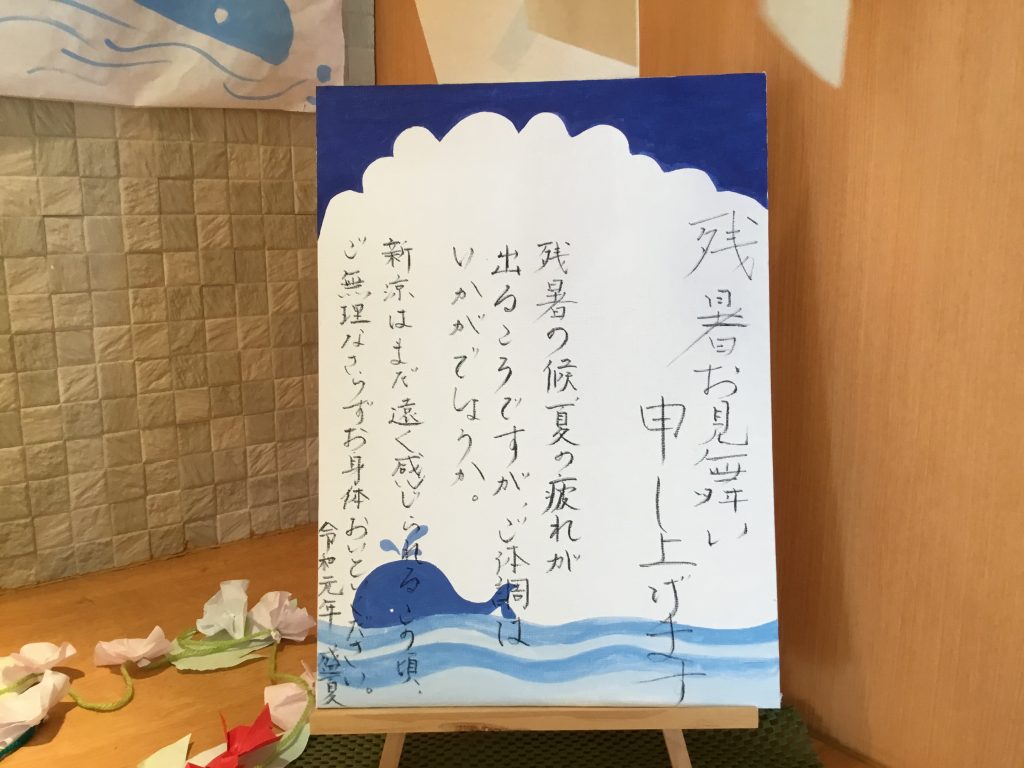 残暑お見舞い
申し上げます
残暑の候、夏の疲れが
出るころですが、ご体調は
いかがでしょうか。
新涼はまだ遠く感じられるこの頃、
ご無理なさらずお身体おいといください。
令和元年 盛夏